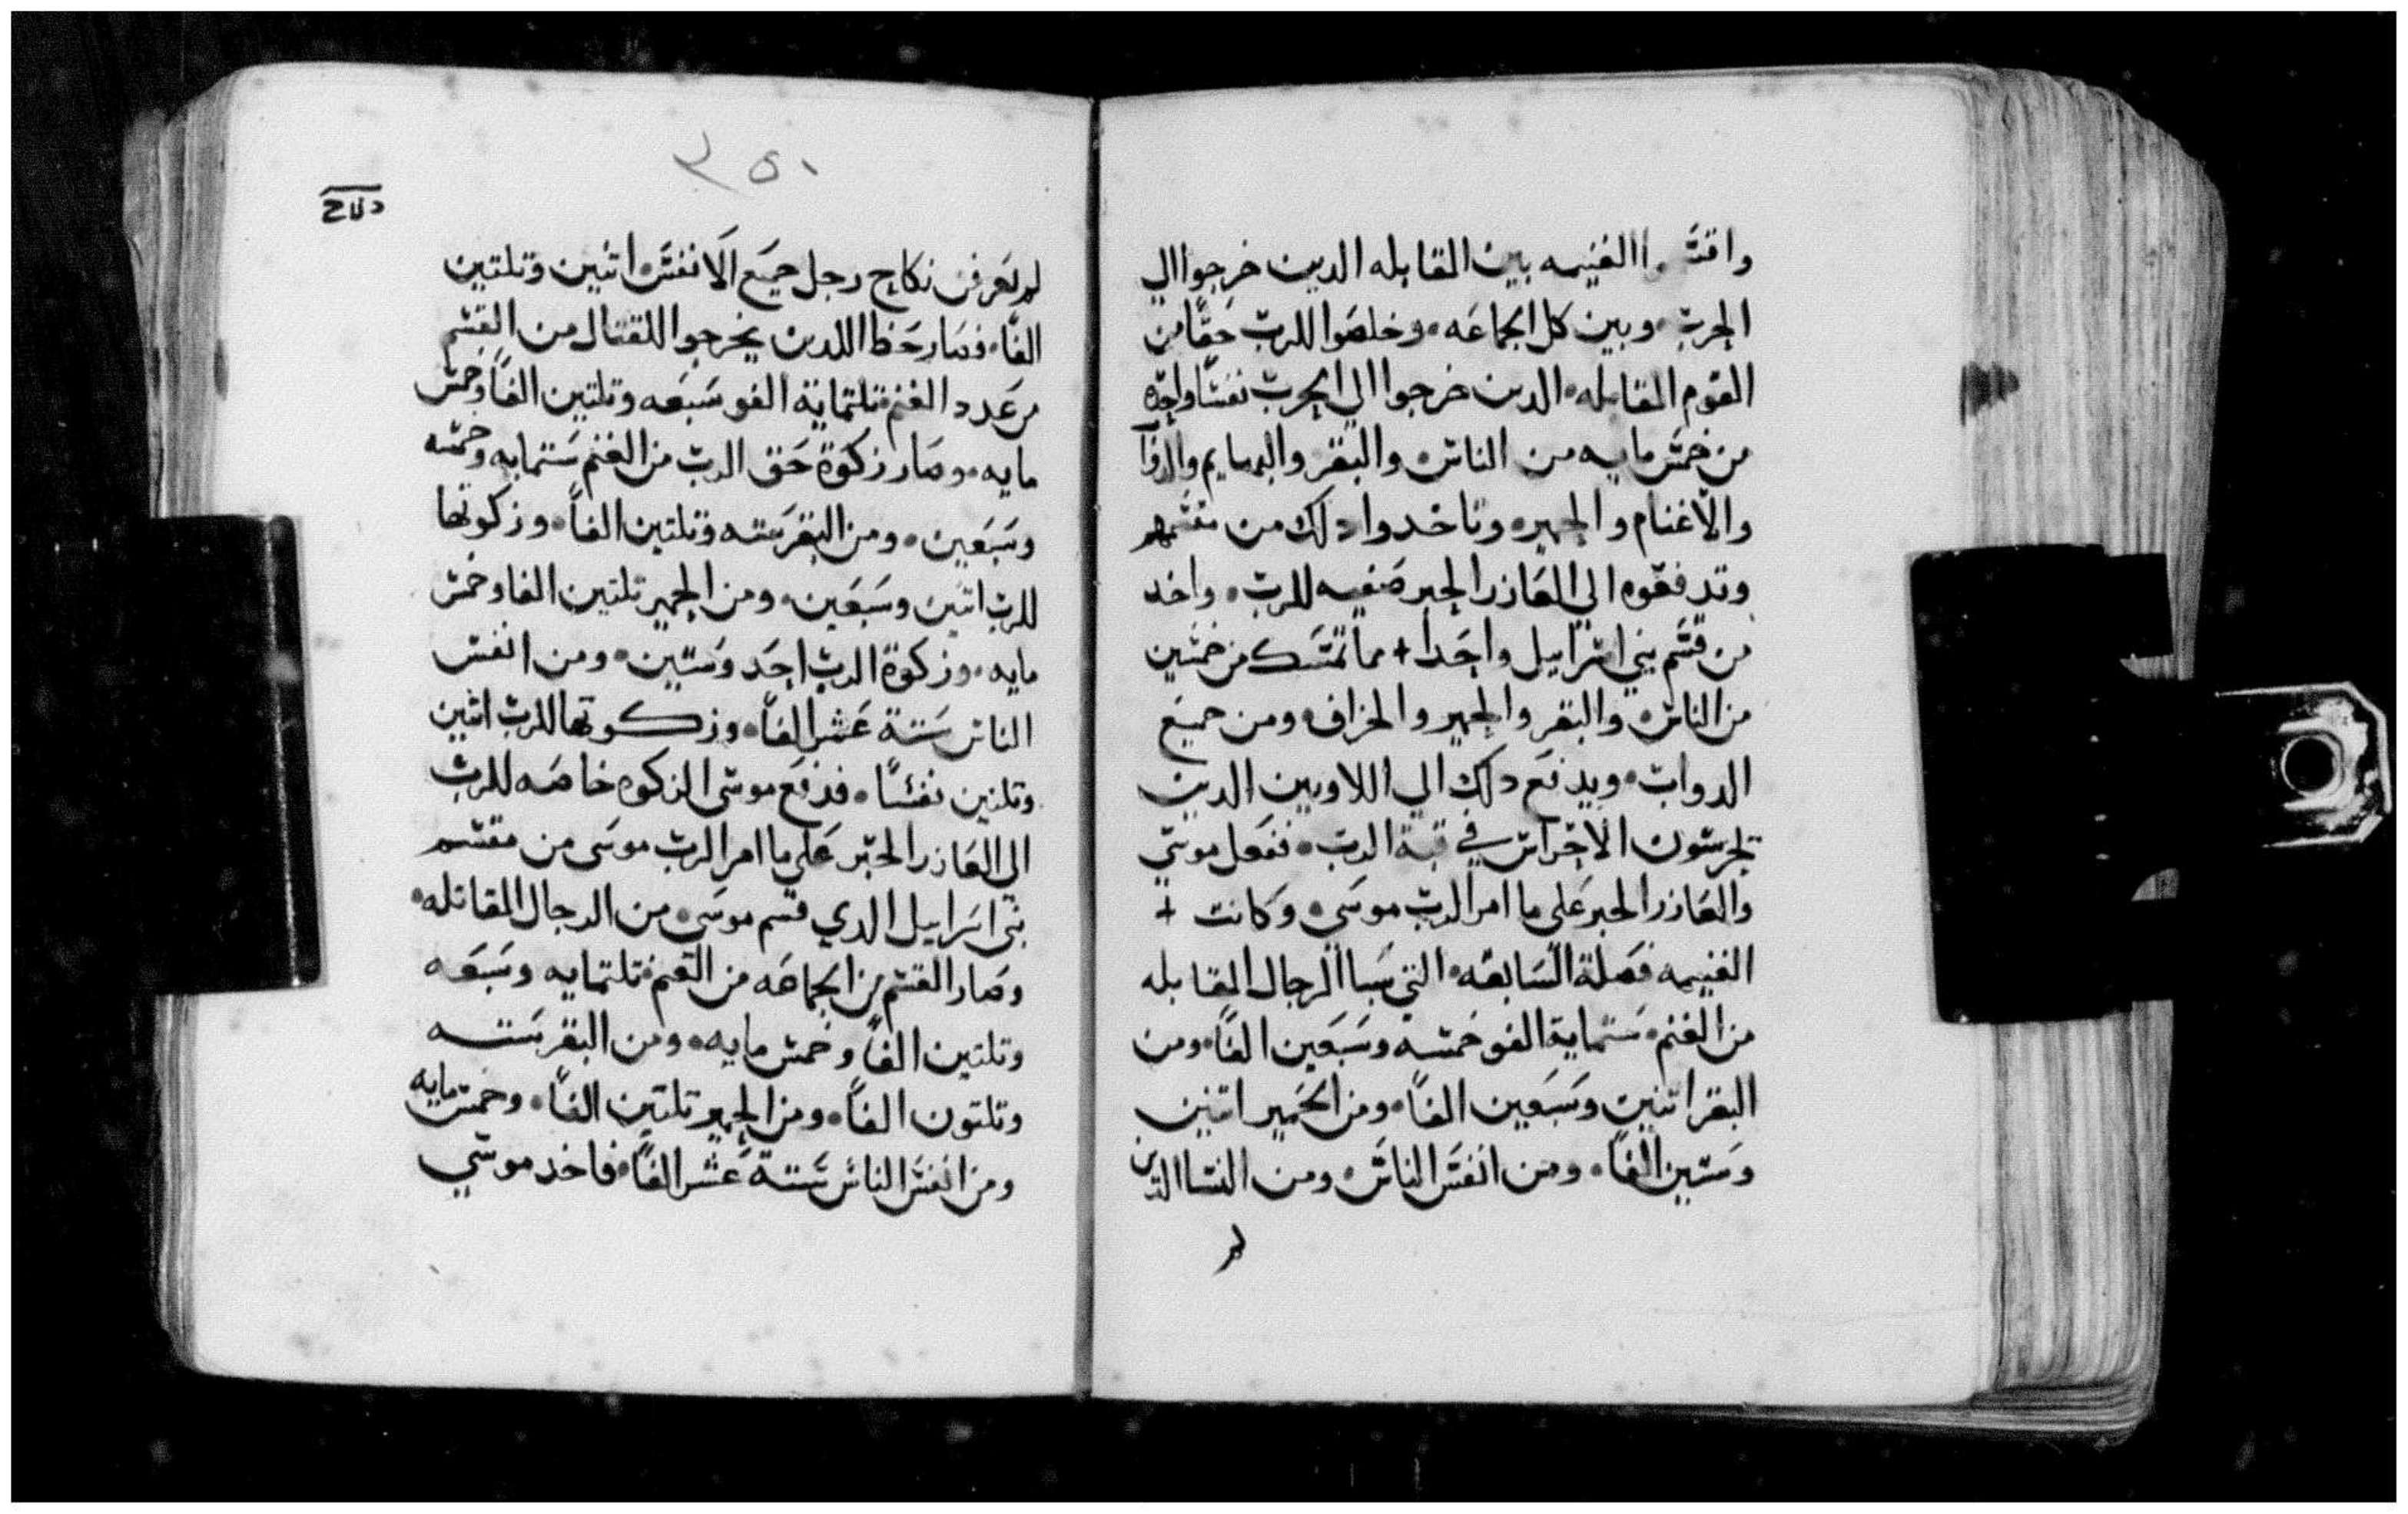 الغنيمه بين المقابله الدين خرجوا الي
الحرب وبين كل الجماعه وخلصوا للرب حقًا من
القوم المقابله الدين خرجوا الي الحرب نفسًا واحده
من خمس مايه من الناس والبقر والبهايم
والاغنام والحمير وتاخدوا دلك من مقسمهم
وتدفعوه الي العازر الحبر صفيه للرب واخد
من قسم بني اسراييل واحدا + مما تمسك من خمسين
من الناس والبقر والحمير والخراف ومن جميع
الدواب ويدفع دلك الي اللاويين الدين
يحرسون الاحراس في قبة الرب ففعل موسي
والعازر الحبر علي ما امر الرب موسي وكانت +
الغنيمه فضلة السابقه التي سبا الرجال المقابله
من الغنم ستماية الف وخمسه وسبعين الفًا ومن
البقر اتنين وسبعين الفًا ومن الحمير اتنين
وستين الفًا ومن انفس الناس ومن النسا الدين
لم
٢٥٠
لم يعرفن نكاح رجل جميع الانفس اتنين وتلتين
الفًا فصار حظ الدين يخرجوا للقتال من القسم
من عدد الغنم تلتماية الف وسبعه وتلتين الفًا وخمس
مايه وصار زكوة حق الرب من الغنم ستمايه وخمسه
وسبعين ومن البقر سته وتلتين الفًا وزكوتها
للرب اتنين وسبعين ومن الحمير تلتين الفا وخمس
مايه وزكوة الرب احد وستين ومن انفس
الناس ستة عشر الفًا وزكوتها للرب اتنين
وتلتين نفسًا فدفع موسي الزكوه خاصه للرب
الي العازر الحبر علي ما امر الرب موسي من مقسم
بني اسراييل الدي قسم موسي من الرجال المقاتله
وصار القسم من الجماعه من الغنم تلتمايه وسبعه
وتلتين الفًا وخمس مايه ومن البقر سته
وتلتون الفًا ومن الحمير تلتين الفًا وخمس مايه
ومن انفس الناس ستة عشر الفًا فاخد موسي